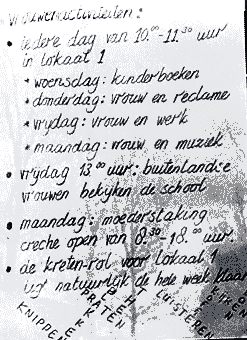 vrouwenactiviteiten:
• iedere dag van 10.00-11.30 uur
in lokaal 1
* woensdag: kinderboeken
* donderdag: vrouw en reclame
* vrydag: vrouw en werk
* maandag: vrouw en muziek
• vrydag 13.00 uur: buitenlandse
vrouwen bekyken de school
• maandag: moederstaking
creche open van 8.30-18.00 uur.
• de kreten-rol voor lokaal 1
ligt natuurlijk de hele week klaar
KNIPPEN
PRATEN
LUISTEREN